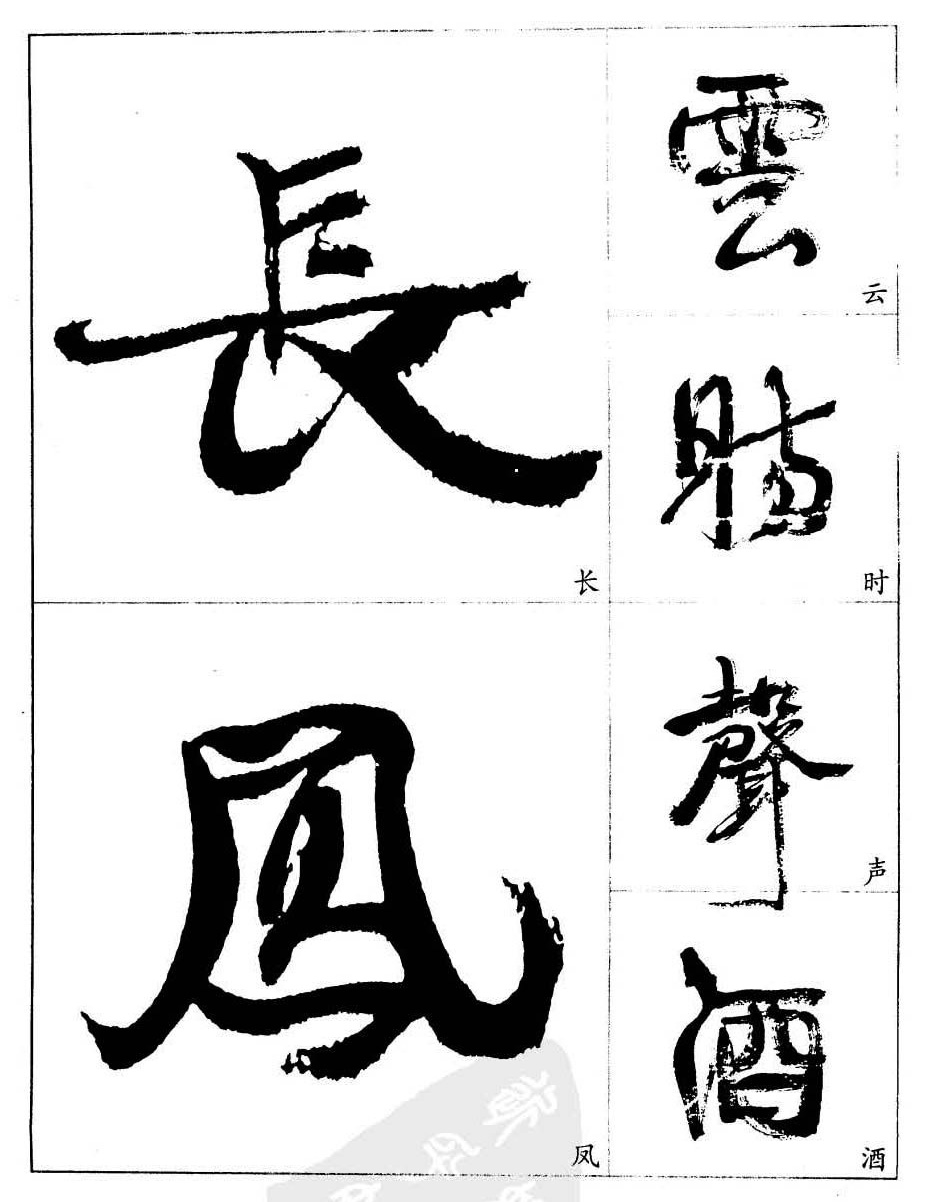 長
长
鳳
凤
雲
云
時
时
聲
声
酒
酒